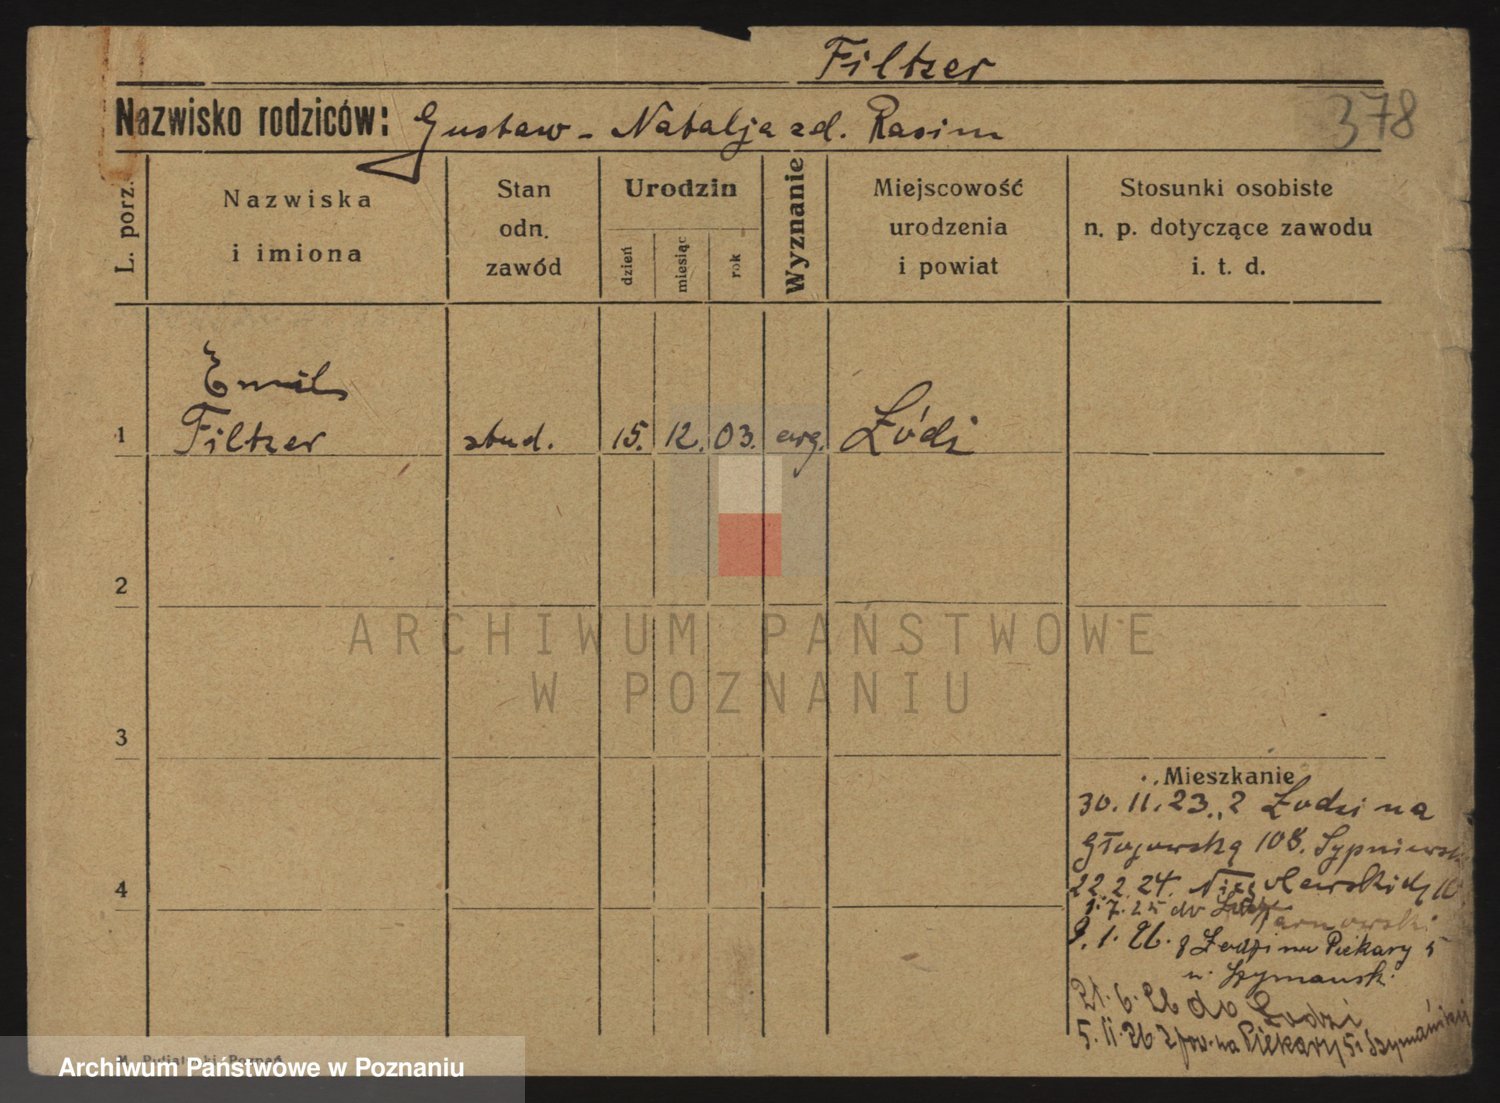 Filtzer
Nazwisko rodziców: Gustaw - Natalja zd. Rasim
378
L. porz.
Nazwiska
i imiona
Stan
odn.
zawód
Urodzin
dzień
miesiąc
rok
Wyznanie
Miejscowość
urodzenia
i powiat
Stosunki osobiste
n. p. dotyczące zawodu
i. t. d.
Emil
1 Filtzer stud. 15. 12. 03. ewg. Łódź
2
3
Mieszkanie
30. 11. 23. z Łodzi na
Głogowską 108. Sypniewsk
4
22. 2. 24.
1. 7. 25 do
9. 1. 26. z Łodzi na Piekary 5
u. Szymansk.
21. 6. 26 do Łodzi
5. 11. 26 z pow. na Piekary 5. Szymański
ARCHIWUM PAŃSTWOWE
W POZNANIU
Archiwum Państwowe w Poznaniu